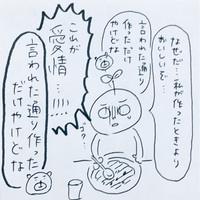 なぜだ…私が作ったときより
おいしいぞ…
言われた通り
作っただけ
やけどな
ゴク…
これが
愛情…!!!!
言われた通り作った
だけやけどな